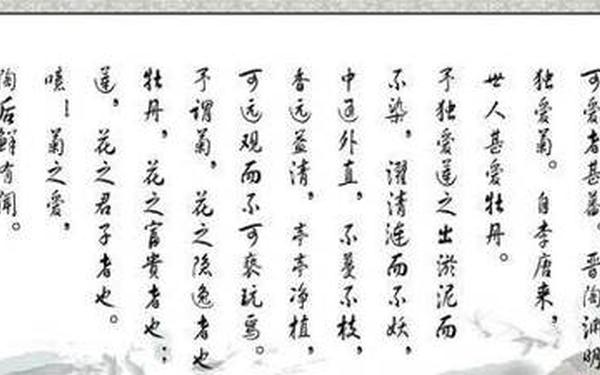 可爱者甚蕃。晋陶渊明
独爱菊。自李唐来，
世人甚爱牡丹。
予独爱莲之出淤泥而
不染，濯清涟而不妖，
中通外直，不蔓不枝，
香远益清，亭亭净植，
可远观而不可亵玩焉。
予谓菊，花之隐逸者也
牡丹，花之富贵者也；
莲，花之君子者也。
噫！菊之爱，
陶后鲜有闻。